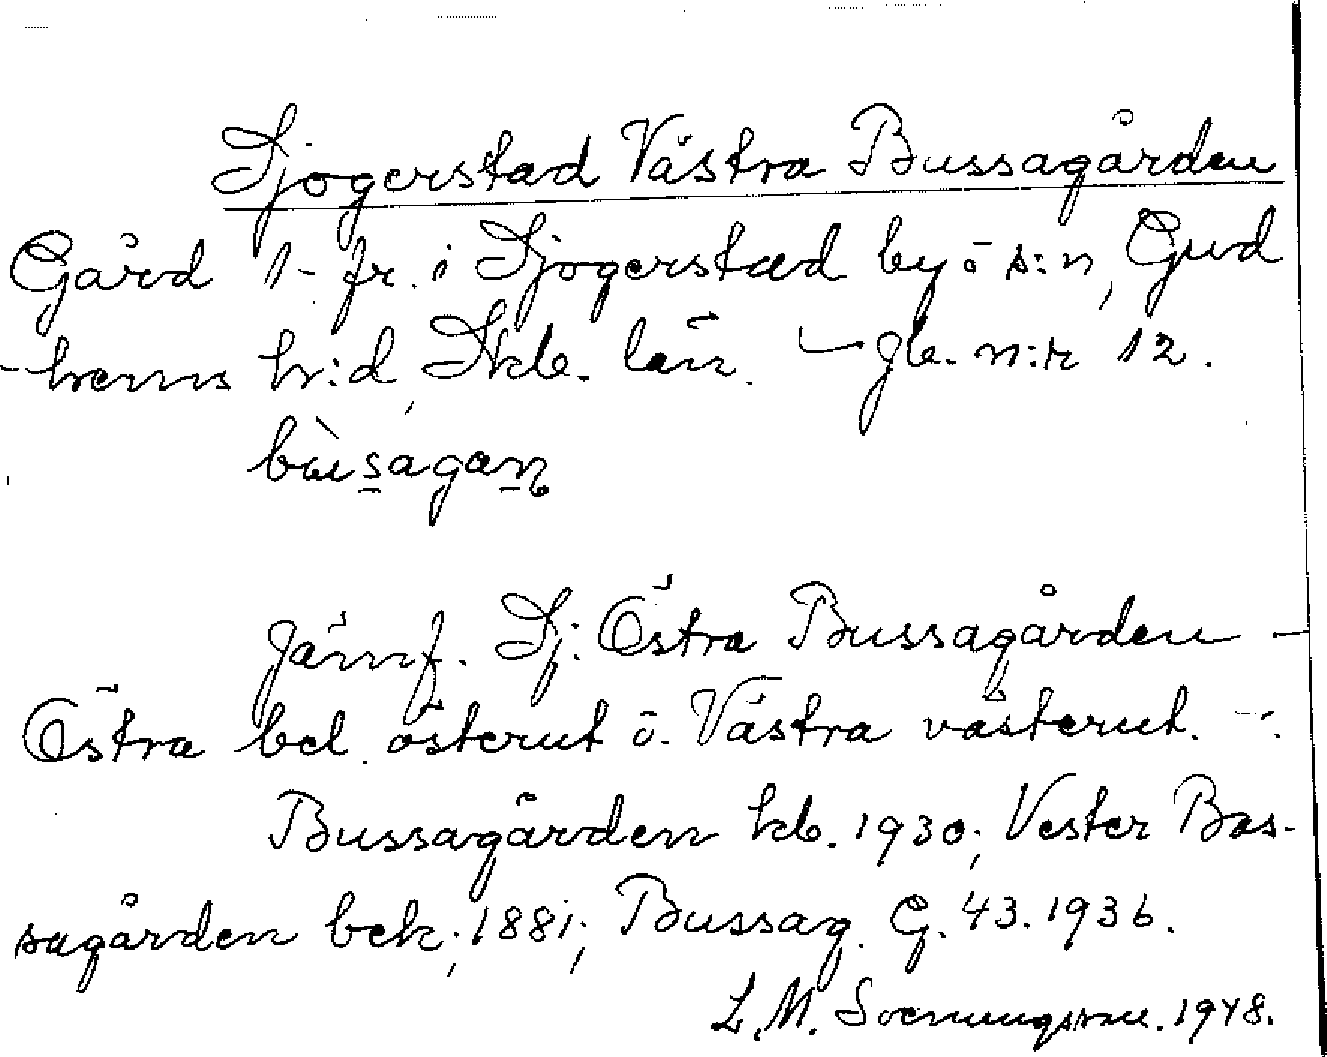 Sjogerstad Västra Bussagården
Gård 1- fr. i Sjogerstad by o s:n, Gud
-hems hr:d, Skb. län. - jb. n:r 12.
bùsagan
Jämf. Sj: Östra Bussagården -
Östra bel. österut o. Västra västerut. -:
Bussagården kb. 1930; Vester Bos-
sagården bek; 1881; Bussag. G. 43. 1936.
L. M. Svenungsson. 1948.